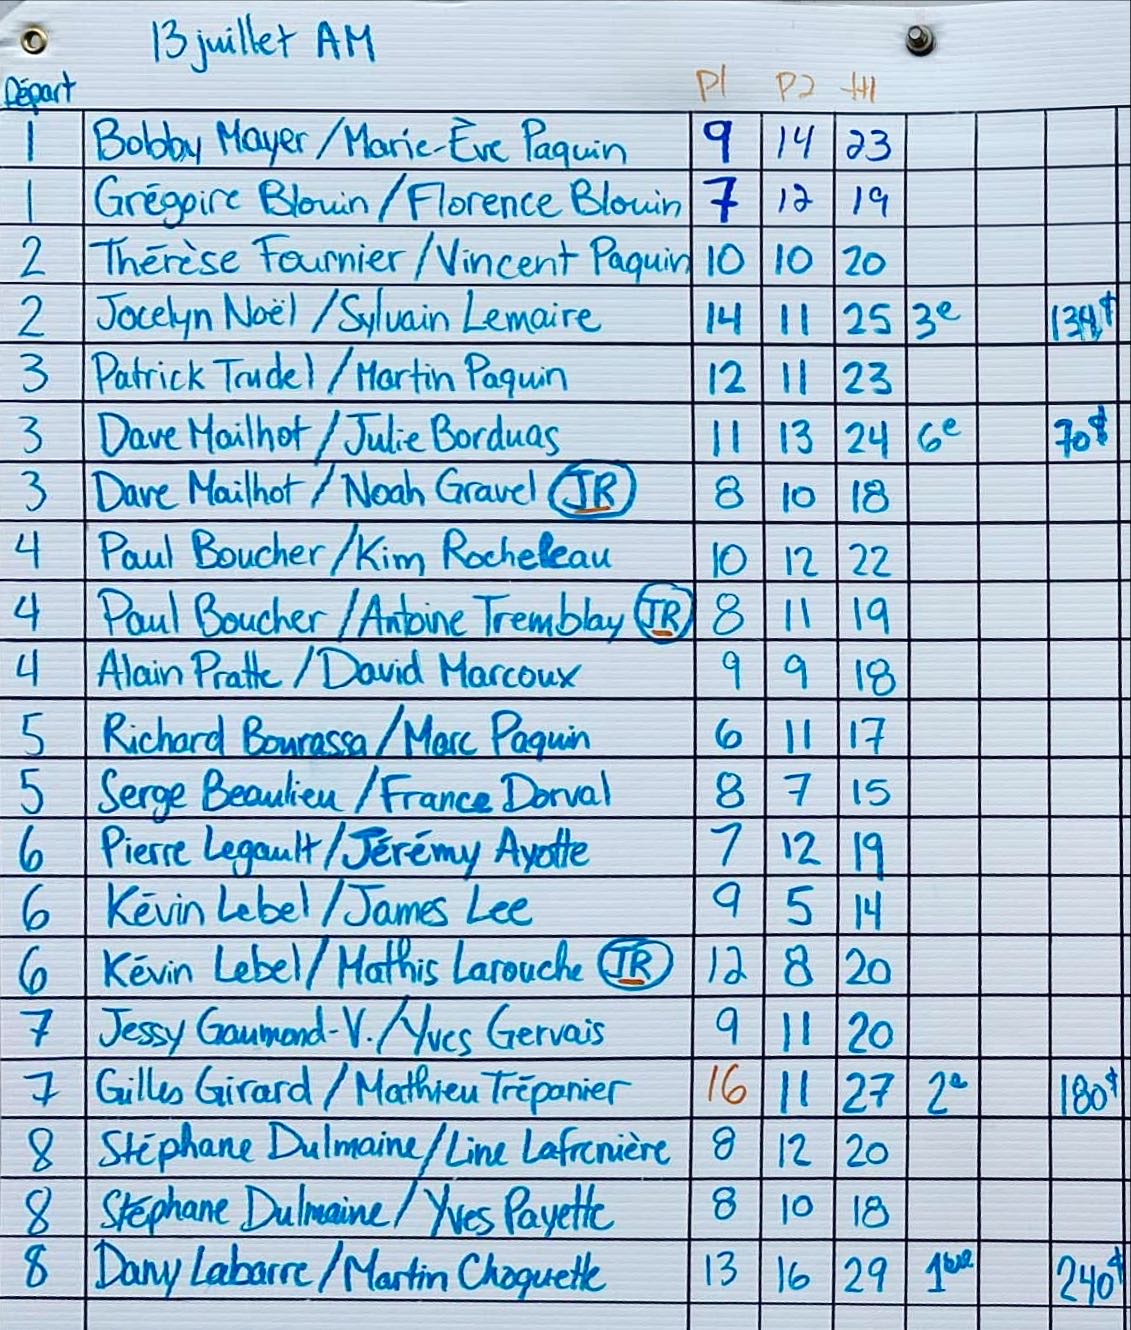 13 juillet AM
Départ P1 P2 ttl
1 Bobby Mayer / Marie-Ève Paquin 9 14 23
1 Grégoire Blouin / Florence Blouin 7 12 19
2 Thérèse Fournier / Vincent Paquin 10 10 20
2 Jocelyn Noël / Sylvain Lemaire 14 11 25 3e 134$
3 Patrick Trudel / Martin Paquin 12 11 23
3 Dave Mailhot / Julie Borduas 11 13 24 6e 70$
3 Dave Mailhot / Noah Gravel JR 8 10 18
4 Paul Boucher / Kim Rocheleau 10 12 22
4 Paul Boucher / Antoine Tremblay JR 8 11 19
4 Alain Pratte / David Marcoux 9 9 18
5 Richard Bourassa / Marc Paquin 6 11 17
5 Serge Beaulieu / France Dorval 8 7 15
6 Pierre Legault / Jérémy Ayotte 7 12 19
6 Kévin Lebel / James Lee 9 5 14
6 Kévin Lebel / Mathis Larouche JR 12 8 20
7 Jessy Gaumond-V. / Yves Gervais 9 11 20
7 Gilles Girard / Mathieu Trépanier 16 11 27 2e 180$
8 Stéphane Dulmaine / Line Lafrenière 8 12 20
8 Stéphane Dulmaine / Yves Payette 8 10 18
8 Dany Labarre / Martin Choquette 13 16 29 1ere 240$